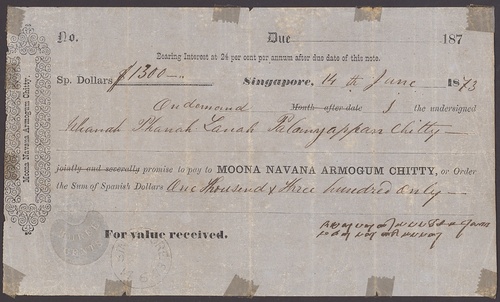 No. Due 187
Bearing Interest at 24 per cent per annum after due date of this note.
Sp. Dollars $1300 Singapore, 14th June 1873
On demand Month after date I the undersigned
Palanyappan Chitty
jointly and severally promise to pay to MOONA NAVANA ARMOGUM CHITTY, or Order
the Sum of Spanish Dollars One thousand & three hundred only
For value received.
Moona Navana Armogum Chitty.